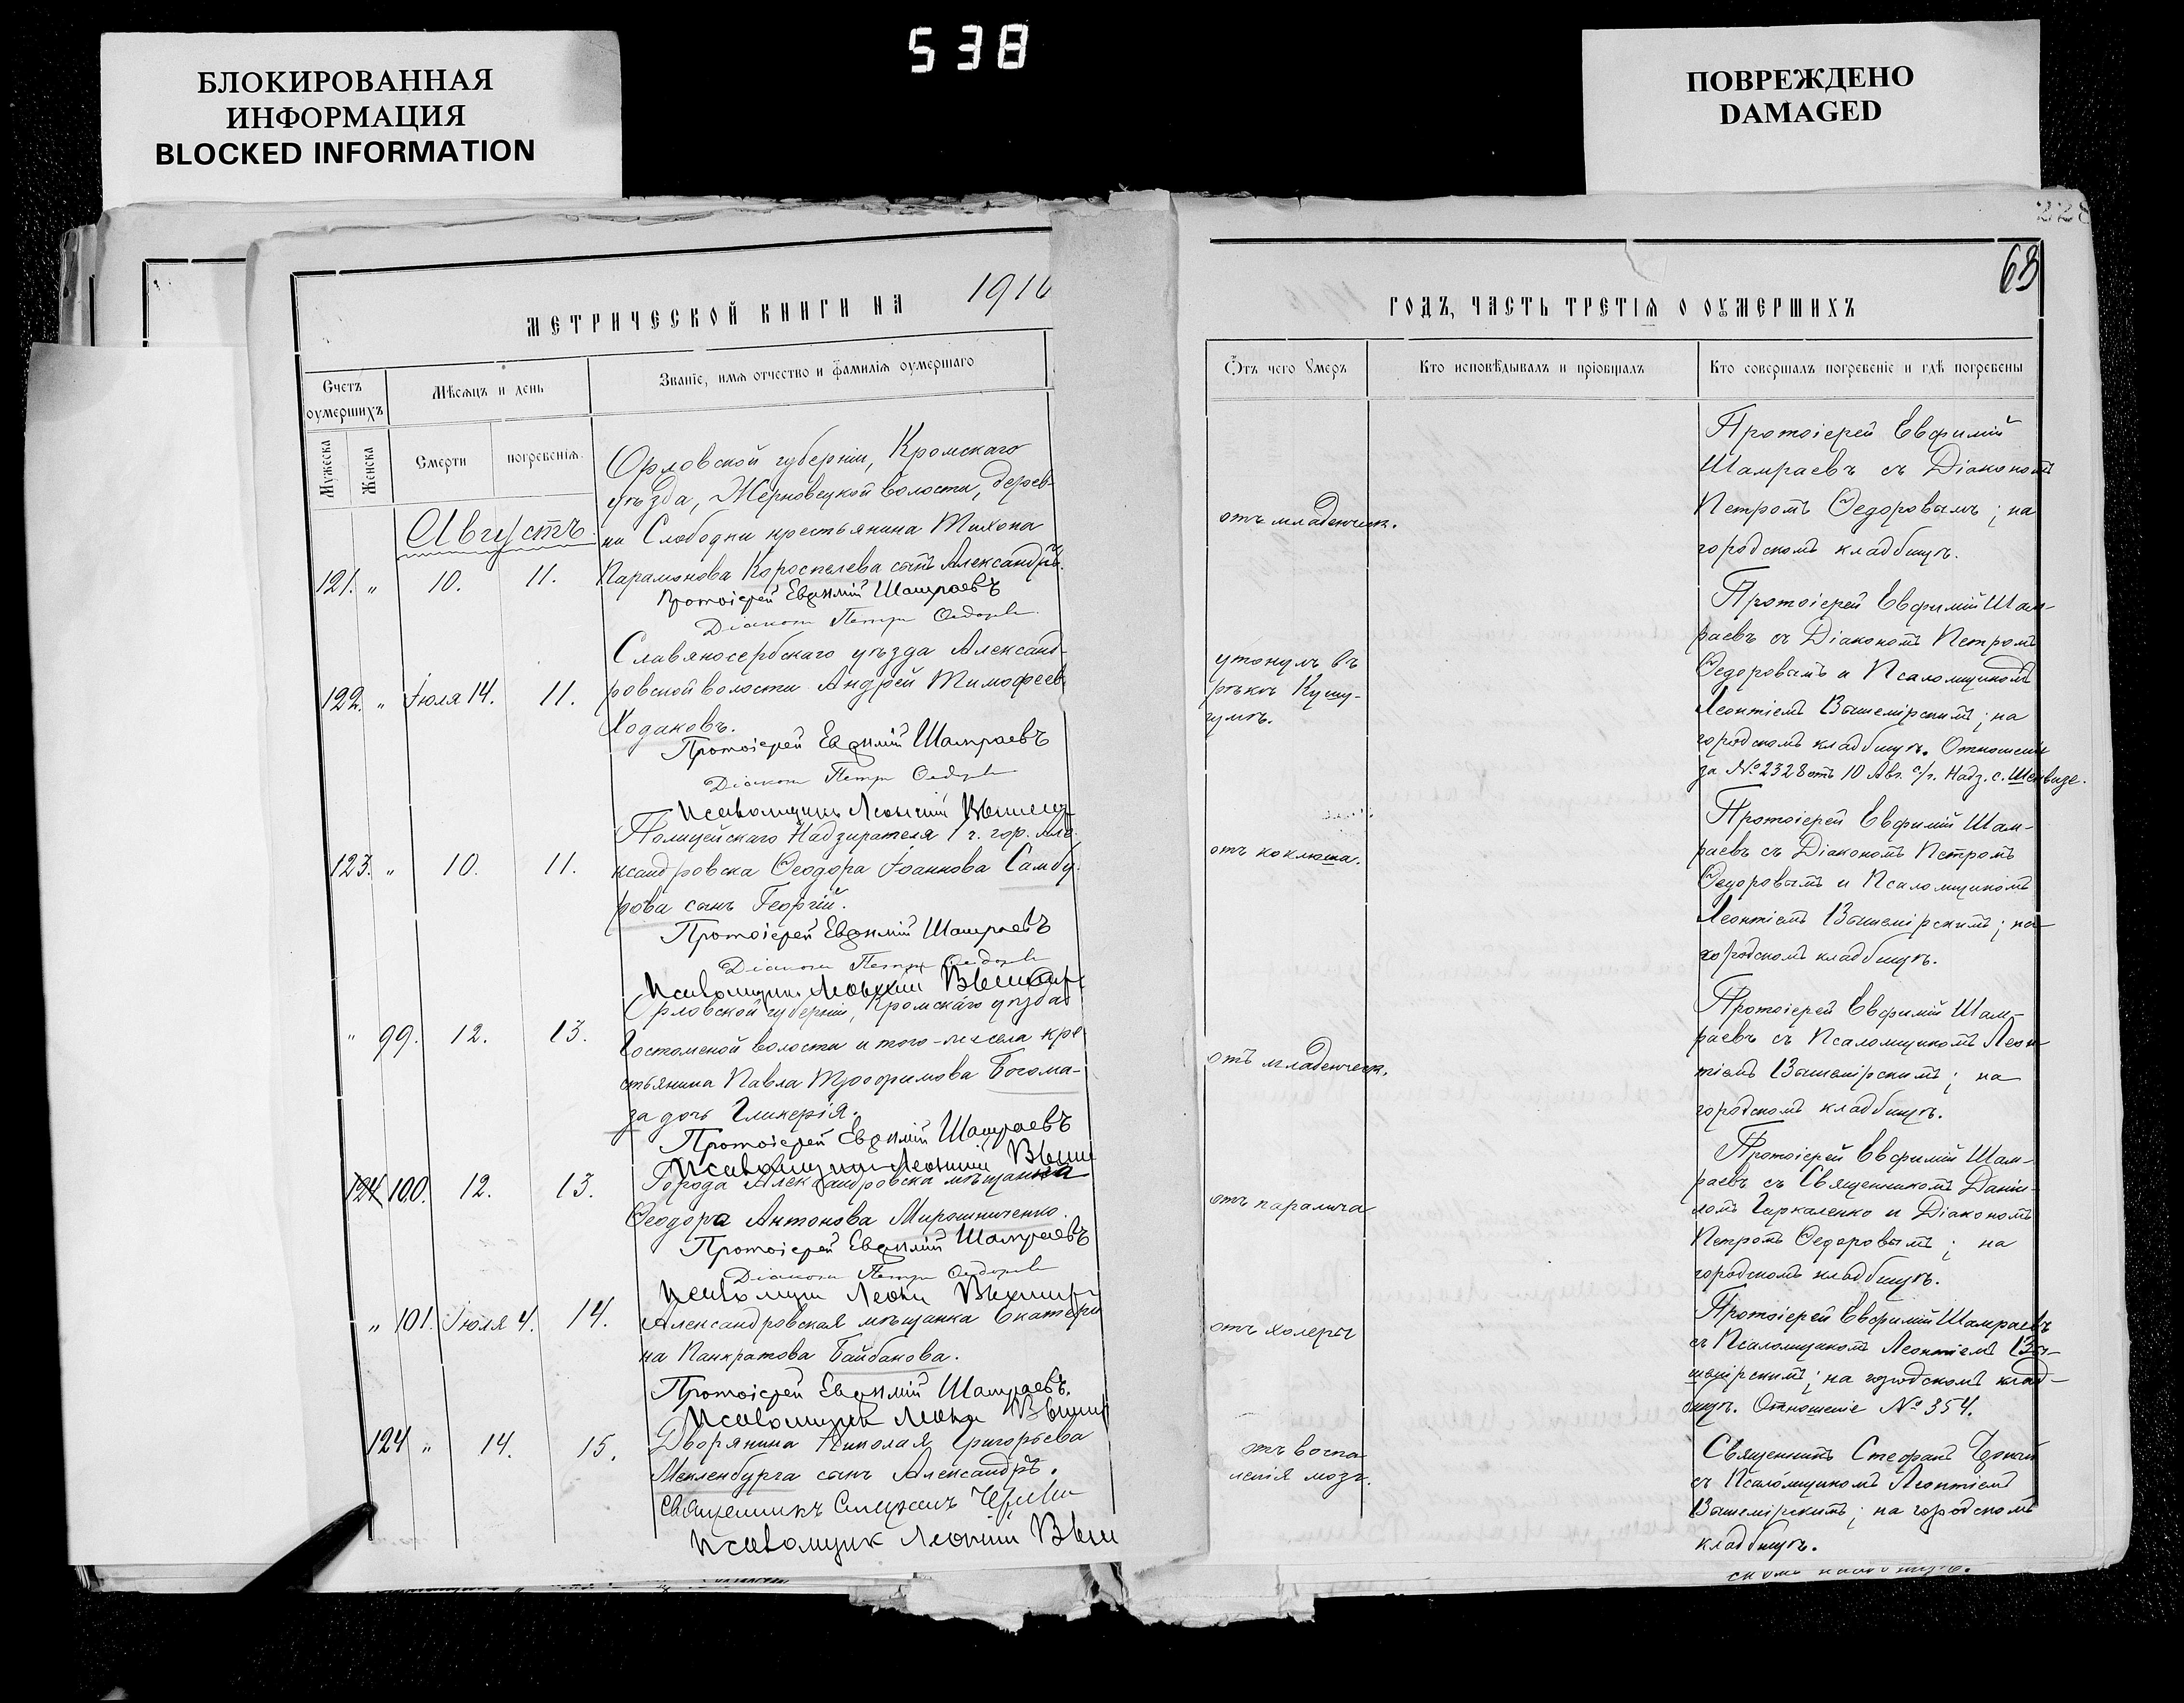 538
БЛОКИРОВАННАЯ
ИНФОРМАЦИЯ
BLOCKED INFORMATION
ПОВРЕЖДЕНО
DAMAGED
228
63
МЕТРИЧЕСКОЙ КНИГИ НА 1916
ГОДЪ, ЧАСТЬ ТРЕТІЯ О ОУМЕРШИХЪ
Счетъ оумершихъ
Мѣсяцъ и день
Званіе, имя отчество и фамилія оумершаго
Мужеска
Женска
Смерти
погребенія.
Отъ чего Умеръ
Кто исповѣдывалъ и пріобщалъ
Кто совершалъ погребеніе и гдѣ погребены
Августъ
Орловской губерніи, Кромскаго
уѣзда, Жерновецкой волости, дерев-
ни Слободки крестьянина Тихона
121. " 10. 11. Парамонова Коростелева сынъ Александръ.
Протоіерей Евфимій Шамраевъ
Діаконъ Петръ Ѳедоровъ
отъ младенческ.
Протоіерей Евфимій
Шамраевъ съ Діакономъ
Петромъ Ѳедоровымъ; на
городскомъ кладбищѣ.
Славяносербскаго уѣзда Александ-
122. " Іюля 14. 11. ровской волости Андрей Тимофеевъ
Ходаковъ.
Протоіерей Евфимій Шамраевъ
Діаконъ Петръ Ѳедоровъ
Псаломщикъ Леонтій
утонулъ въ
рѣкѣ Кушу-
гумъ.
Протоіерей Евфимій Шам-
раевъ съ Діакономъ Петромъ
Ѳедоровымъ и Псаломщикомъ
Леонтіемъ Вышемірскимъ; на
городскомъ кладбищѣ. Отношеніе
за № 2328 отъ 10 Авг. с/г. Надз. с.
Полицейскаго Надзирателя 1 ч. гор. Але-
123. " 10. 11. ксандровска Ѳеодора Іоаннова Самбу-
рова сынъ Георгій.
Протоіерей Евфимій Шамраевъ
Діаконъ Петръ Ѳедоровъ
Псаломщикъ Леонтій
отъ коклюша.
Протоіерей Евфимій Шам-
раевъ съ Діакономъ Петромъ
Ѳедоровымъ и Псаломщикомъ
Леонтіемъ Вышемірскимъ; на
городскомъ кладбищѣ.
Орловской губерніи, Кромскаго уѣзда
" 99. 12. 13. Гостомской волости и того-же села кре
стьянина Павла Трофимова Богома-
за дочь Гликерія.
Протоіерей Евфимій Шамраевъ
Псаломщикъ Леонтій
отъ младенческ.
Протоіерей Евфимій Шам-
раевъ съ Псаломщикомъ Леон-
тіемъ Вышемірскимъ; на
городскомъ кладбищѣ.
124 100. 12. 13. Города Александровска мѣщанка
Ѳеодора Антонова Мирошниченко.
Протоіерей Евфимій Шамраевъ
Діаконъ Петръ Ѳедоровъ
Псаломщикъ
отъ паралича
Протоіерей Евфимій Шам-
раевъ съ Священникомъ Даніи-
ломъ и Діакономъ
Петромъ Ѳедоровымъ; на
городскомъ кладбищѣ.
" 101. Іюля 4. 14. Александровская мѣщанка Екатери
на Панкратова Байбакова.
Протоіерей Евфимій Шамраевъ.
Псаломщикъ
отъ холеры
Протоіерей Евфимій Шамраевъ
съ Псаломщикомъ Леонтіемъ Вы-
шемірскимъ; на городскомъ клад-
бищѣ. Отношеніе № 354.
124 " 14. 15. Дворянина Николая Григорьева
Мекленбурга сынъ Александръ.
Священникъ Стефанъ
Псаломщик Леонтій
отъ воспа
ленія мозг.
Священникъ Стефанъ
съ Псаломщикомъ Леонтіемъ
Вышемірскимъ; на городскомъ
кладбищѣ.